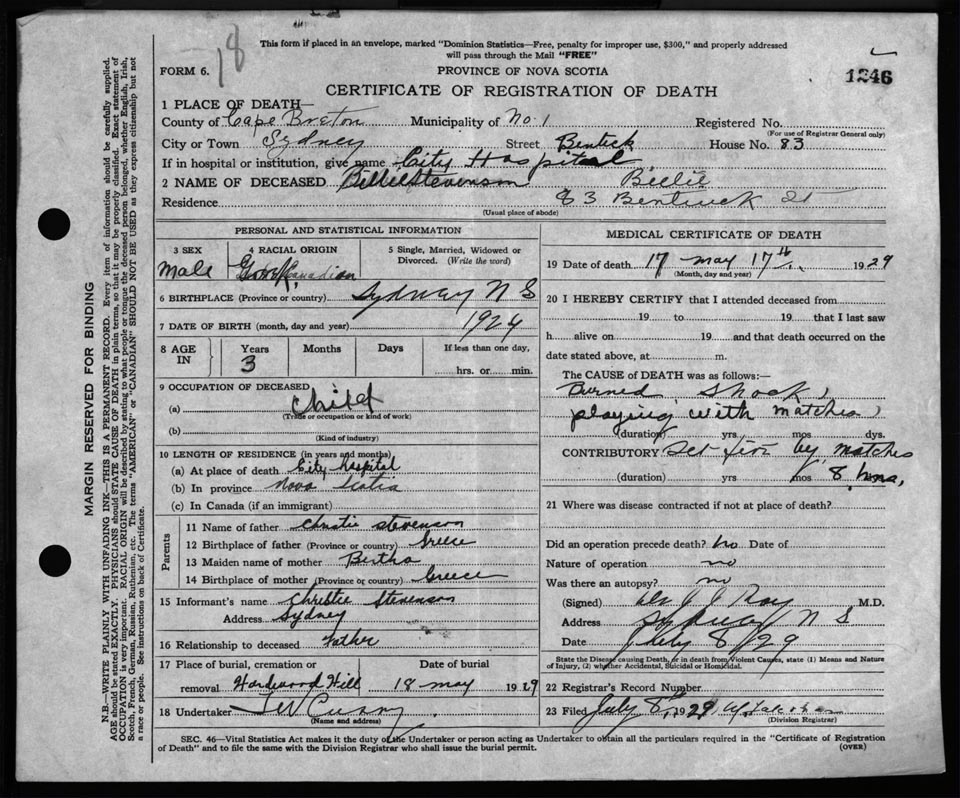 18
This form if placed in an envelope, marked "Dominion Statistics—Free, penalty for improper use, $300," and properly addressed
will pass through the Mail "FREE"
FORM 6.
PROVINCE OF NOVA SCOTIA
1246
CERTIFICATE OF REGISTRATION OF DEATH
1 PLACE OF DEATH—
County of Cape Breton Municipality of No. 1 Registered No.
(For use of Registrar General only)
City or Town Sydney Street Bentick House No. 83
If in hospital or institution, give name City Hospital
2 NAME OF DECEASED Billie Stevenson Billie
Residence 83 Bentinck St
(Usual place of abode)
PERSONAL AND STATISTICAL INFORMATION
3 SEX
Male
4 RACIAL ORIGIN
Canadian
5 Single, Married, Widowed or
Divorced. (Write the word)
6 BIRTHPLACE (Province or country) Sydney N S
7 DATE OF BIRTH (month, day and year) 1924
8 AGE IN
Years Months Days If less than one day,
3 hrs. or min.
9 OCCUPATION OF DECEASED
(a) Child
(Trade or occupation or kind of work)
(b)
(Kind of industry)
10 LENGTH OF RESIDENCE (in years and months)
(a) At place of death City Hospital
(b) In province Nova Scotia
(c) In Canada (if an immigrant)
Parents
11 Name of father Christie Stevenson
12 Birthplace of father (Province or country) Greece
13 Maiden name of mother Bertha
14 Birthplace of mother (Province or country) Greece
15 Informant's name Christie Stevenson
Address Sydney
16 Relationship to deceased Father
17 Place of burial, cremation or Date of burial
removal Hardwood Hill 18 May 1929
18 Undertaker J W Curry
(Name and address)
MEDICAL CERTIFICATE OF DEATH
19 Date of death 17 May 17th 1929
(Month, day and year)
20 I HEREBY CERTIFY that I attended deceased from
19 to 19 that I last saw
h alive on 19 and that death occurred on the
date stated above, at m.
The CAUSE of DEATH was as follows:
Burned Shock
playing with matches
(duration) yrs. mos. dys.
CONTRIBUTORY Set fire by matches
(duration) yrs mos 8 hrs,
21 Where was disease contracted if not at place of death?
Did an operation precede death? no Date of
Nature of operation no
Was there an autopsy? no
(Signed) Roy M.D.
Address Sydney N S
Date July 8/29
State the Disease causing Death, or in death from Violent Causes, state (1) Means and Nature
of Injury, (2) whether Accidental, Suicidal or Homicidal.
22 Registrar's Record Number
23 Filed July 8, 1929
(Division Registrar)
SEC. 46—Vital Statistics Act makes it the duty of the Undertaker or person acting as Undertaker to obtain all the particulars required in the "Certificate of Registration
of Death" and to file the same with the Division Registrar who shall issue the burial permit.
(OVER)
MARGIN RESERVED FOR BINDING
N.B.—WRITE PLAINLY WITH UNFADING INK—THIS IS A PERMANENT RECORD. Every item of information should be carefully supplied.
AGE should be stated EXACTLY. PHYSICIANS should STATE CAUSE OF DEATH in plain terms, so that it may be properly classified. Exact statement of
OCCUPATION is very important. RACIAL ORIGIN will be described by stating to what people or tongue the deceased person belonged, whether English, Irish,
Scotch, French, German, Russian, Ruthenian, etc. The terms "AMERICAN" or "CANADIAN" SHOULD NOT BE USED as they express citizenship but not
a race or people. See instructions on back of Certificate.